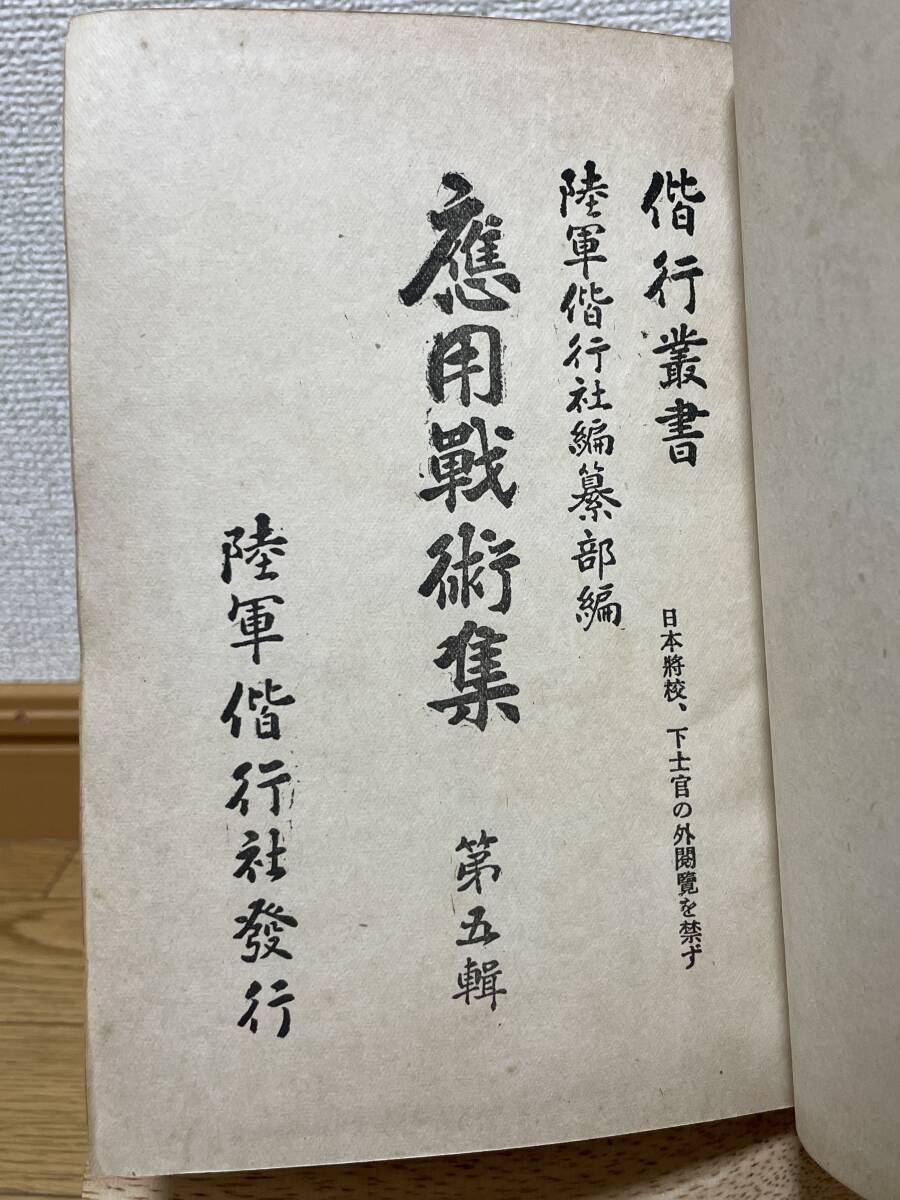 偕行叢書
日本將校、下士官の外閱覽を禁ず
陸軍偕行社編纂部編
應用戰術集 第五輯
陸軍偕行社發行